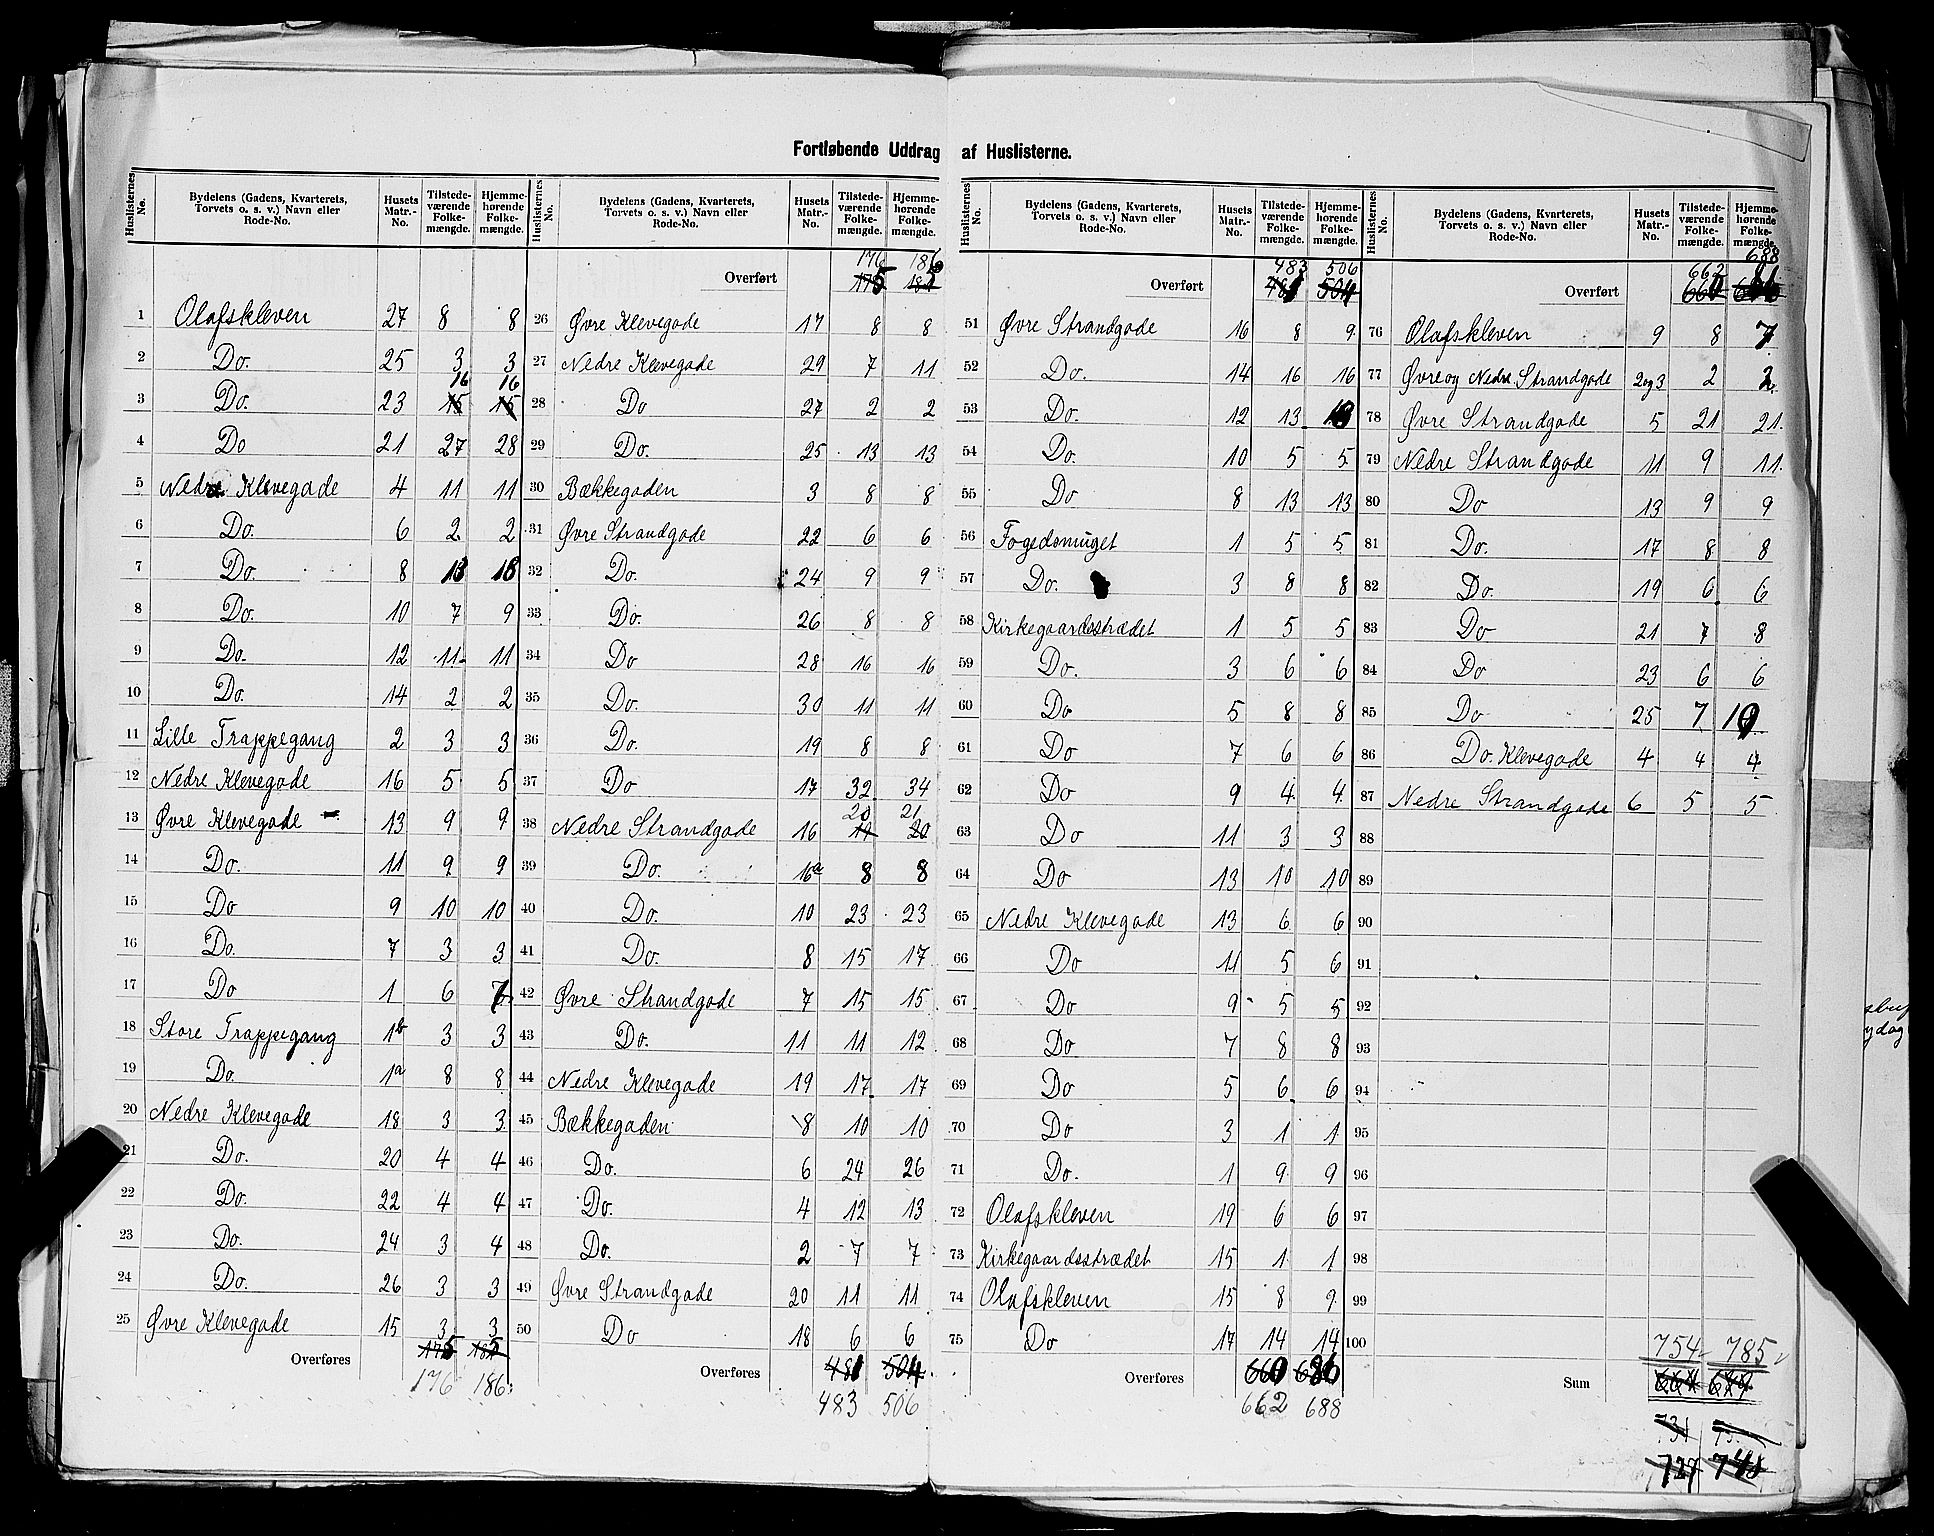 Fortløbende Uddrag af Huslisterne.
Huslisternes No. | Bydelens (Gadens, Kvarterets, Torvets o. s. v.) Navn eller Rode-No. | Husets Matr.-No. | Tilstedeværende Folkemængde. | Hjemmehørende Folkemængde.
1 Olafskleven 27 8 8
2 Do. 25 3 3
3 Do. 23 16 16
4 Do 21 27 28
5 Nedre Klevegade 4 11 11
6 Do. 6 2 2
7 Do. 8 18 18
8 Do. 10 7 9
9 Do. 12 11 11
10 Do. 14 2 2
11 Lille Trappegang 2 3 3
12 Nedre Klevegade 16 5 5
13 Øvre Klevegade 13 9 9
14 Do. 11 9 9
15 Do 9 10 10
16 Do. 7 3 3
17 Do 1 6 7
18 Store Trappegang 1b 3 3
19 Do. 1a 8 8
20 Nedre Klevegade 18 3 3
21 Do. 20 4 4
22 Do. 22 4 4
23 Do. 24 3 4
24 Do. 26 3 3
25 Øvre Klevegade 15 3 3
Overføres 175 185
176 186
Huslisternes No. | Bydelens (Gadens, Kvarterets, Torvets o. s. v.) Navn eller Rode-No. | Husets Matr.-No. | Tilstedeværende Folkemængde. | Hjemmehørende Folkemængde.
176 186
Overført 175 185
26 Øvre Klevegade 17 8 8
27 Nedre Klevegade 29 7 11
28 Do 27 2 2
29 Do. 25 13 13
30 Bækkegaden 3 8 8
31 Øvre Strandgade 22 6 6
32 Do. 24 9 9
33 Do. 26 8 8
34 Do 28 16 16
35 Do. 30 11 11
36 Do. 19 8 8
37 Do 17 32 34
20 21
38 Nedre Strandgade 16 19 20
39 Do. 16a 8 8
40 Do. 10 23 23
41 Do. 8 15 17
42 Øvre Strandgade 7 15 15
43 Do. 11 11 12
44 Nedre Klevegade 19 17 17
45 Bækkegaden 8 10 10
46 Do. 6 24 26
47 Do. 4 12 13
48 Do. 2 7 7
49 Øvre Strandgade 20 11 11
50 Do 18 6 6
Overføres 481 504
483 506
Huslisternes No. | Bydelens (Gadens, Kvarterets, Torvets o. s. v.) Navn eller Rode-No. | Husets Matr.-No. | Tilstedeværende Folkemængde. | Hjemmehørende Folkemængde.
483 506
Overført 481 504
51 Øvre Strandgade 16 8 9
52 Do. 14 16 16
53 Do. 12 13
54 Do. 10 5 5
55 Do 8 13 13
56 Fogedsmuget 1 5 5
57 Do. 3 8 8
58 Kirkegaardsstrædet 1 5 5
59 Do. 3 6 6
60 Do 5 8 8
61 Do 7 6 6
62 Do 9 4 4
63 Do 11 3 3
64 Do 13 10 10
65 Nedre Klevegade 13 6 6
66 Do 11 5 6
67 Do 9 5 5
68 Do 7 8 8
69 Do 5 6 6
70 Do 3 1 1
71 Do. 1 9 9
72 Olafskleven 19 6 6
73 Kirkegaardsstrædet 15 1 1
74 Olafskleven 15 8 9
75 Do 17 14 14
Overføres 660 686
662 688
Huslisternes No. | Bydelens (Gadens, Kvarterets, Torvets o. s. v.) Navn eller Rode-No. | Husets Matr.-No. | Tilstedeværende Folkemængde. | Hjemmehørende Folkemængde.
662 688
Overført 660 686
76 Olafskleven 9 8 7
77 Øvre og Nedre Strandgade 2og3 2 2
78 Øvre Strandgade 5 21 21
79 Nedre Strandgade 11 9 11
80 Do 13 9 9
81 Do. 17 8 8
82 Do. 19 6 6
83 Do 21 7 8
84 Do 23 6 6
85 Do 25 7 10
86 Do. Klevegade 4 4 4
87 Nedre Strandgade 6 5 5
88
89
90
91
92
93
94
95
96
97
98
99
100
754 785
Sum
731
727 748